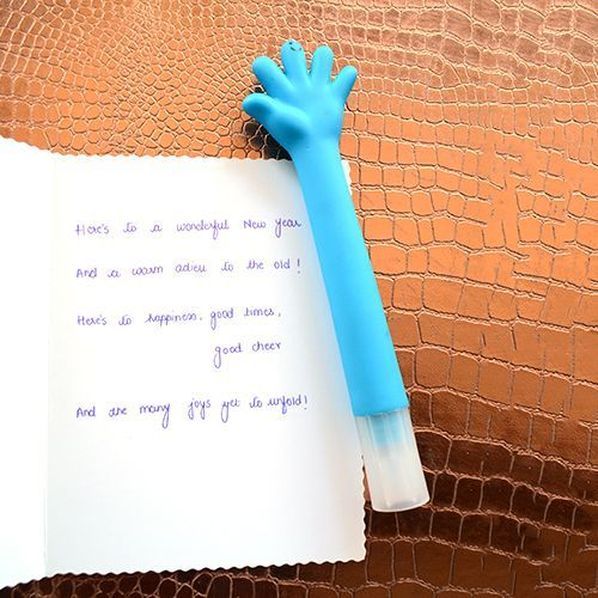 Here's to a wonderful New year
And a warm adieu to the old!
Here's to happiness, good times,
good cheer
And the many joys yet to unfold!